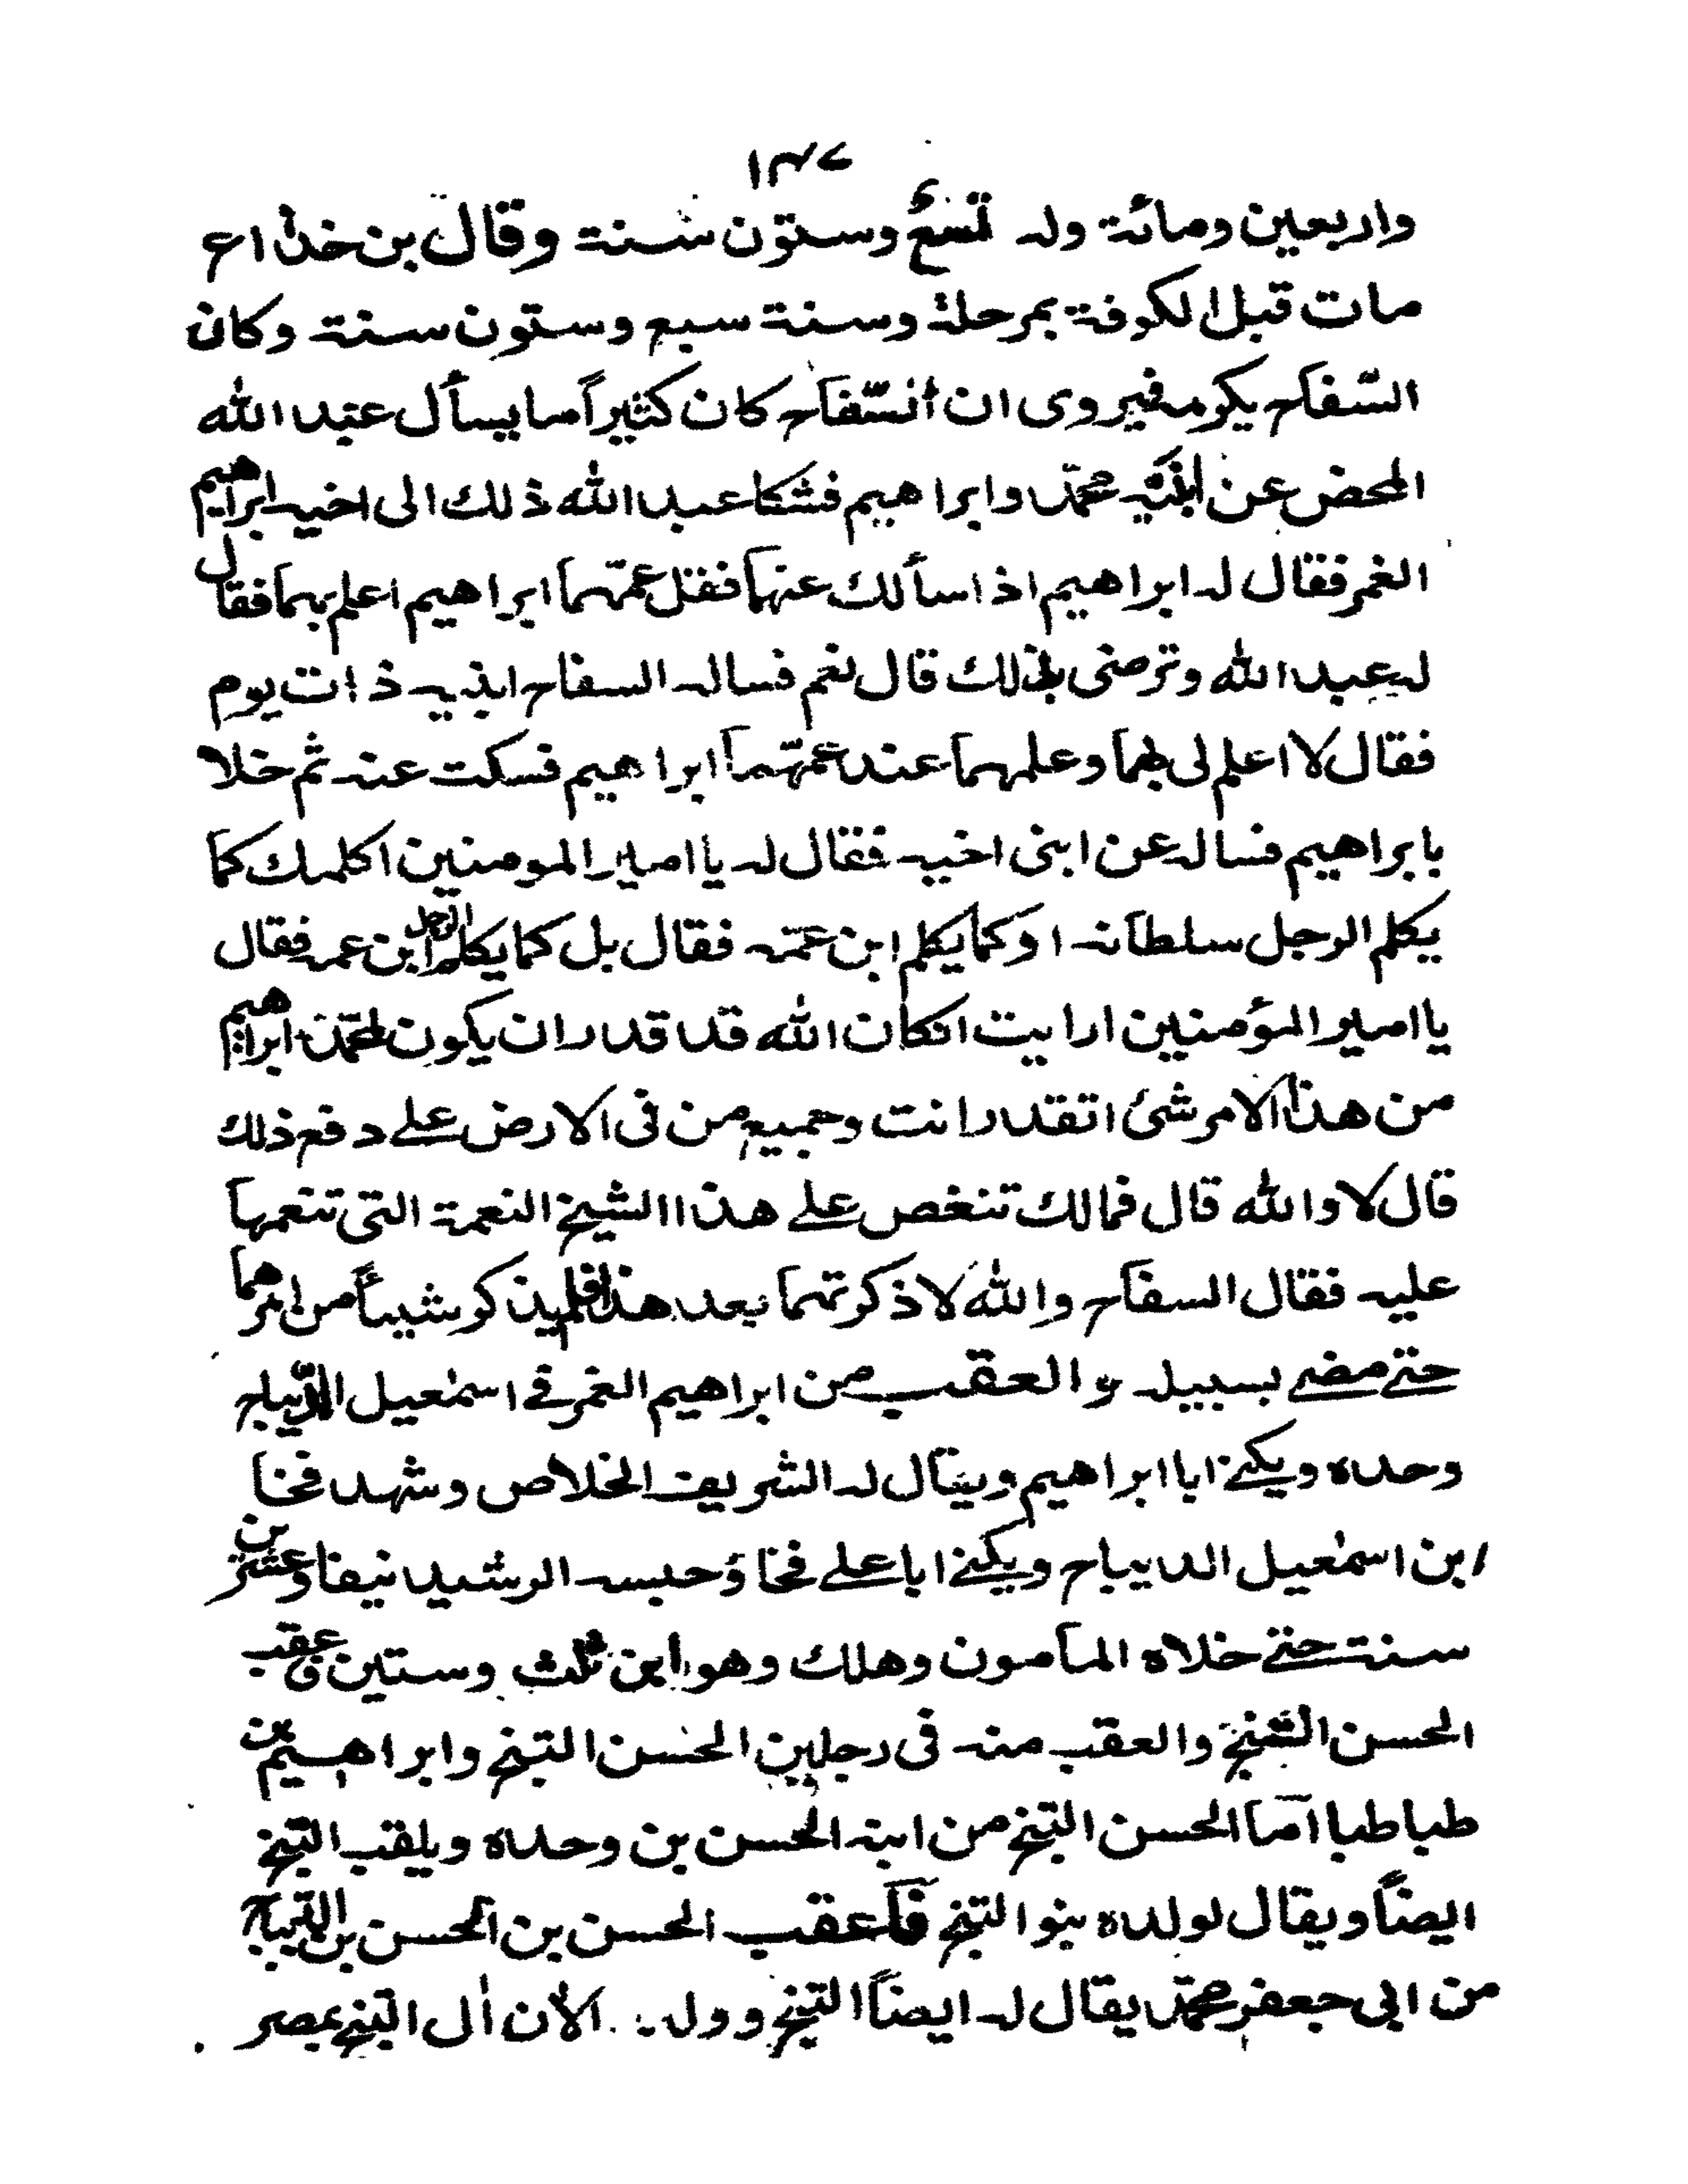 ۱۳۷
واربعین ومائة وله تسع وستون سنة وقال بن خداع
مات قبل الکوفة بمرحلة وسنة سبع وستون سنة وکان
السّفاح یکرمه فیروی ان السّفاح کان کثیراً ما یسأل عبد الله
المحض عن ابنیه محمّد وابراهیم فشکا عبد الله ذلك الی اخیه ابراهیم
الغمر فقال له ابراهیم اذا سألك عنهما فقل عمّهما ابراهیم اعلم بهما فقال
له عبد الله وترضی بذلك قال نعم فساله السفاح ابنیه ذات یوم
فقال لا اعلم لی بهما وعلمهما عند عمّهما ابراهیم فسکت عنه ثم خلا
بابراهیم فساله عن ابنی اخیه فقال له یا امیر المومنین اکلمك کما
یکلم الرجل سلطانه او کما یکلم ابن عمّه فقال بل کما یکلم الرجل ابن عمه فقال
یا امیر المؤمنین ارایت انکان الله قد قدر ان یکون لمحمّد وابراهیم
من هذا الامر شئ اتقدر انت وجمیع من فی الارض علے دفع ذلك
قال لا والله قال فمالك تنغص علے هذا الشیخ النعمة التی تنعمها
علیه فقال السفاح والله لا ذکرتهما بعد هذا فلم یذکر شیئاً من امرهما
حتے مضے بسبیله والعقب من ابراهیم الغمر فے اسمٰعیل الدّیباج
وحده ویکنے ابا ابراهیم ویقال له الشریف الخلاص وشهد فخا
ابن اسمٰعیل الدیباج ویکنے ابا علے فخا وحبسه الرشید نیفا وعشرین
سنة حتے خلاه المأمون وهلك وهو ابن ثلث وستین فعقب
الحسن التّبخ والعقب منه فی رجلین الحسن التبخ وابراهیم بن
طباطبا امّا الحسن التّبخ من ابنه الحسن بن وحده ویلقب التّبخ
ایضاً ویقال لولده بنو التبخ فأعقب الحسن بن الحسن بن الدّیباج
من ابی جعفر محمّد یقال له ایضاً التبخ وولد الآن اٰل التبخ بمصر